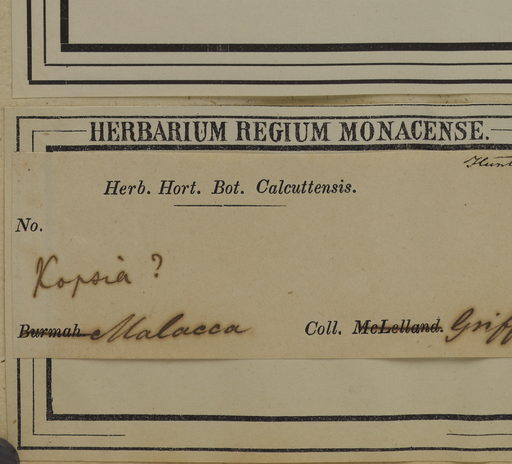 HERBARIUM REGIUM MONACENSE.
Herb. Hort. Bot. Calcuttensis.
No.
Kopsia ?
Burmah Malacca Coll. McLelland. Griff